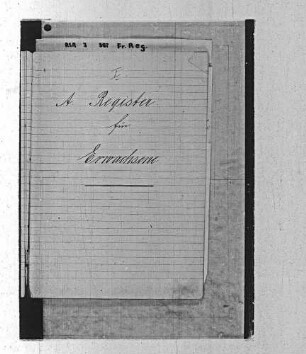 Fr. Reg.
I.
A Register
für
Erwachsene